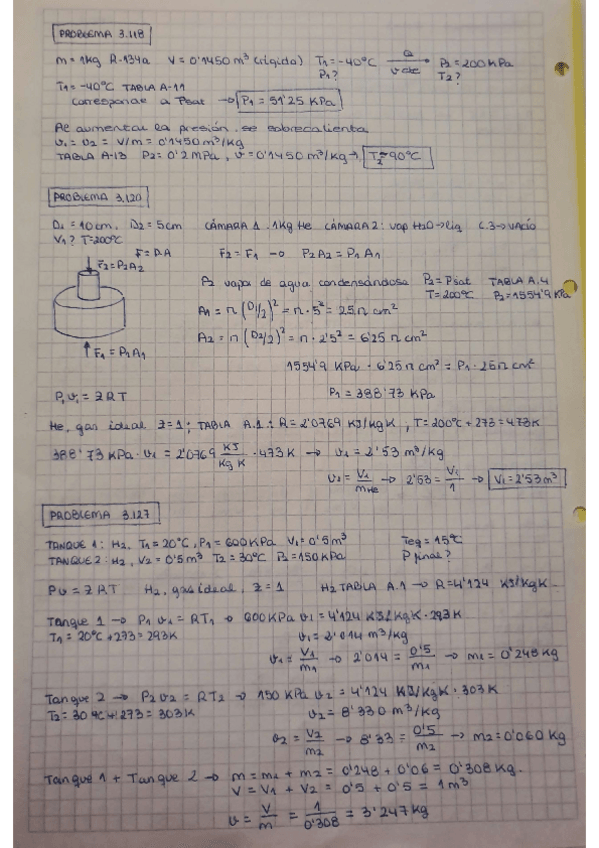 PROBLEMA 3.118
m = 1kg R-134a V = 0'1450 m³ (rígido) T₁ = -40ºC → Q v cte P₂ = 200 KPa
P₁? T₂?
T₁ = -40ºC TABLA A-11
corresponde a Psat → P₁ = 51'25 KPa
Al aumentar la presión, se sobrecalienta
v₁ = v₂ = V/m = 0'1450 m³/kg
TABLA A-13 P₂ = 0'2 MPa, v = 0'1450 m³/kg → T₂ = 90ºC
PROBLEMA 3.120
D₁ = 10cm, D₂ = 5cm CÁMARA 1: 1Kg He CÁMARA 2: vap H₂O → liq C.3 → vacío
V₁? T = 200ºC
F = P.A F₂ = F₁ → P₂A₂ = P₁A₁
F₂ = P₂A₂
P₂ vapor de agua condensándose P₂ = Psat TABLA A.4
T = 200ºC P₂ = 1554'9 KPa
A₁ = π (D₁/2)² = π · 5² = 25π cm²
A₂ = π (D₂/2)² = π · 2'5² = 6'25π cm²
F₁ = P₁A₁
1554'9 KPa · 6'25π cm² = P₁ · 25π cm²
P₁v₁ = ZRT P₁ = 388'73 KPa
He, gas ideal Z=1; TABLA A.1: R = 2'0769 KJ/kgK, T = 200ºC + 273 = 473K
388'73 KPa · v₁ = 2'0769 KJ/Kg K · 473 K → v₁ = 2'53 m³/kg
v₁ = V₁/mHe → 2'53 = V₁/1 → V₁ = 2'53 m³
PROBLEMA 3.127
TANQUE 1: H₂, T₁ = 20ºC, P₁ = 600 KPa V₁ = 0'5 m³ Teq = 15ºC
TANQUE 2: H₂, V₂ = 0'5 m³ T₂ = 30ºC P₂ = 150 KPa P final?
Pv = ZRT H₂, gas ideal, Z = 1 H₂ TABLA A.1 → R = 4'124 KJ/KgK
Tanque 1 → P₁ v₁ = RT₁ → 600 KPa v₁ = 4'124 KJ/KgK · 293K
T₁ = 20ºC + 273 = 293K v₁ = 2'014 m³/kg
v₁ = V₁/m₁ → 2'014 = 0'5/m₁ → m₁ = 0'248 Kg
Tanque 2 → P₂ v₂ = RT₂ → 150 KPa v₂ = 4'124 KJ/KgK · 303K
T₂ = 30ºC + 273 = 303K v₂ = 8'330 m³/kg
v₂ = V₂/m₂ → 8'33 = 0'5/m₂ → m₂ = 0'060 Kg
Tanque 1 + Tanque 2 → m = m₁ + m₂ = 0'248 + 0'06 = 0'308 Kg.
V = V₁ + V₂ = 0'5 + 0'5 = 1 m³
v = V/m = 1/0'308 = 3'247 kg